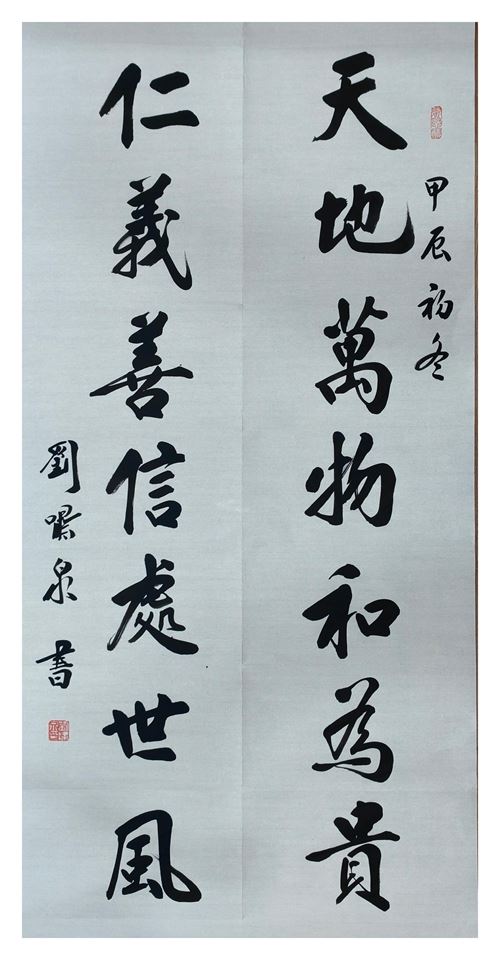 甲辰初冬
天地萬物和為貴
仁義善信處世風
劉 泉書